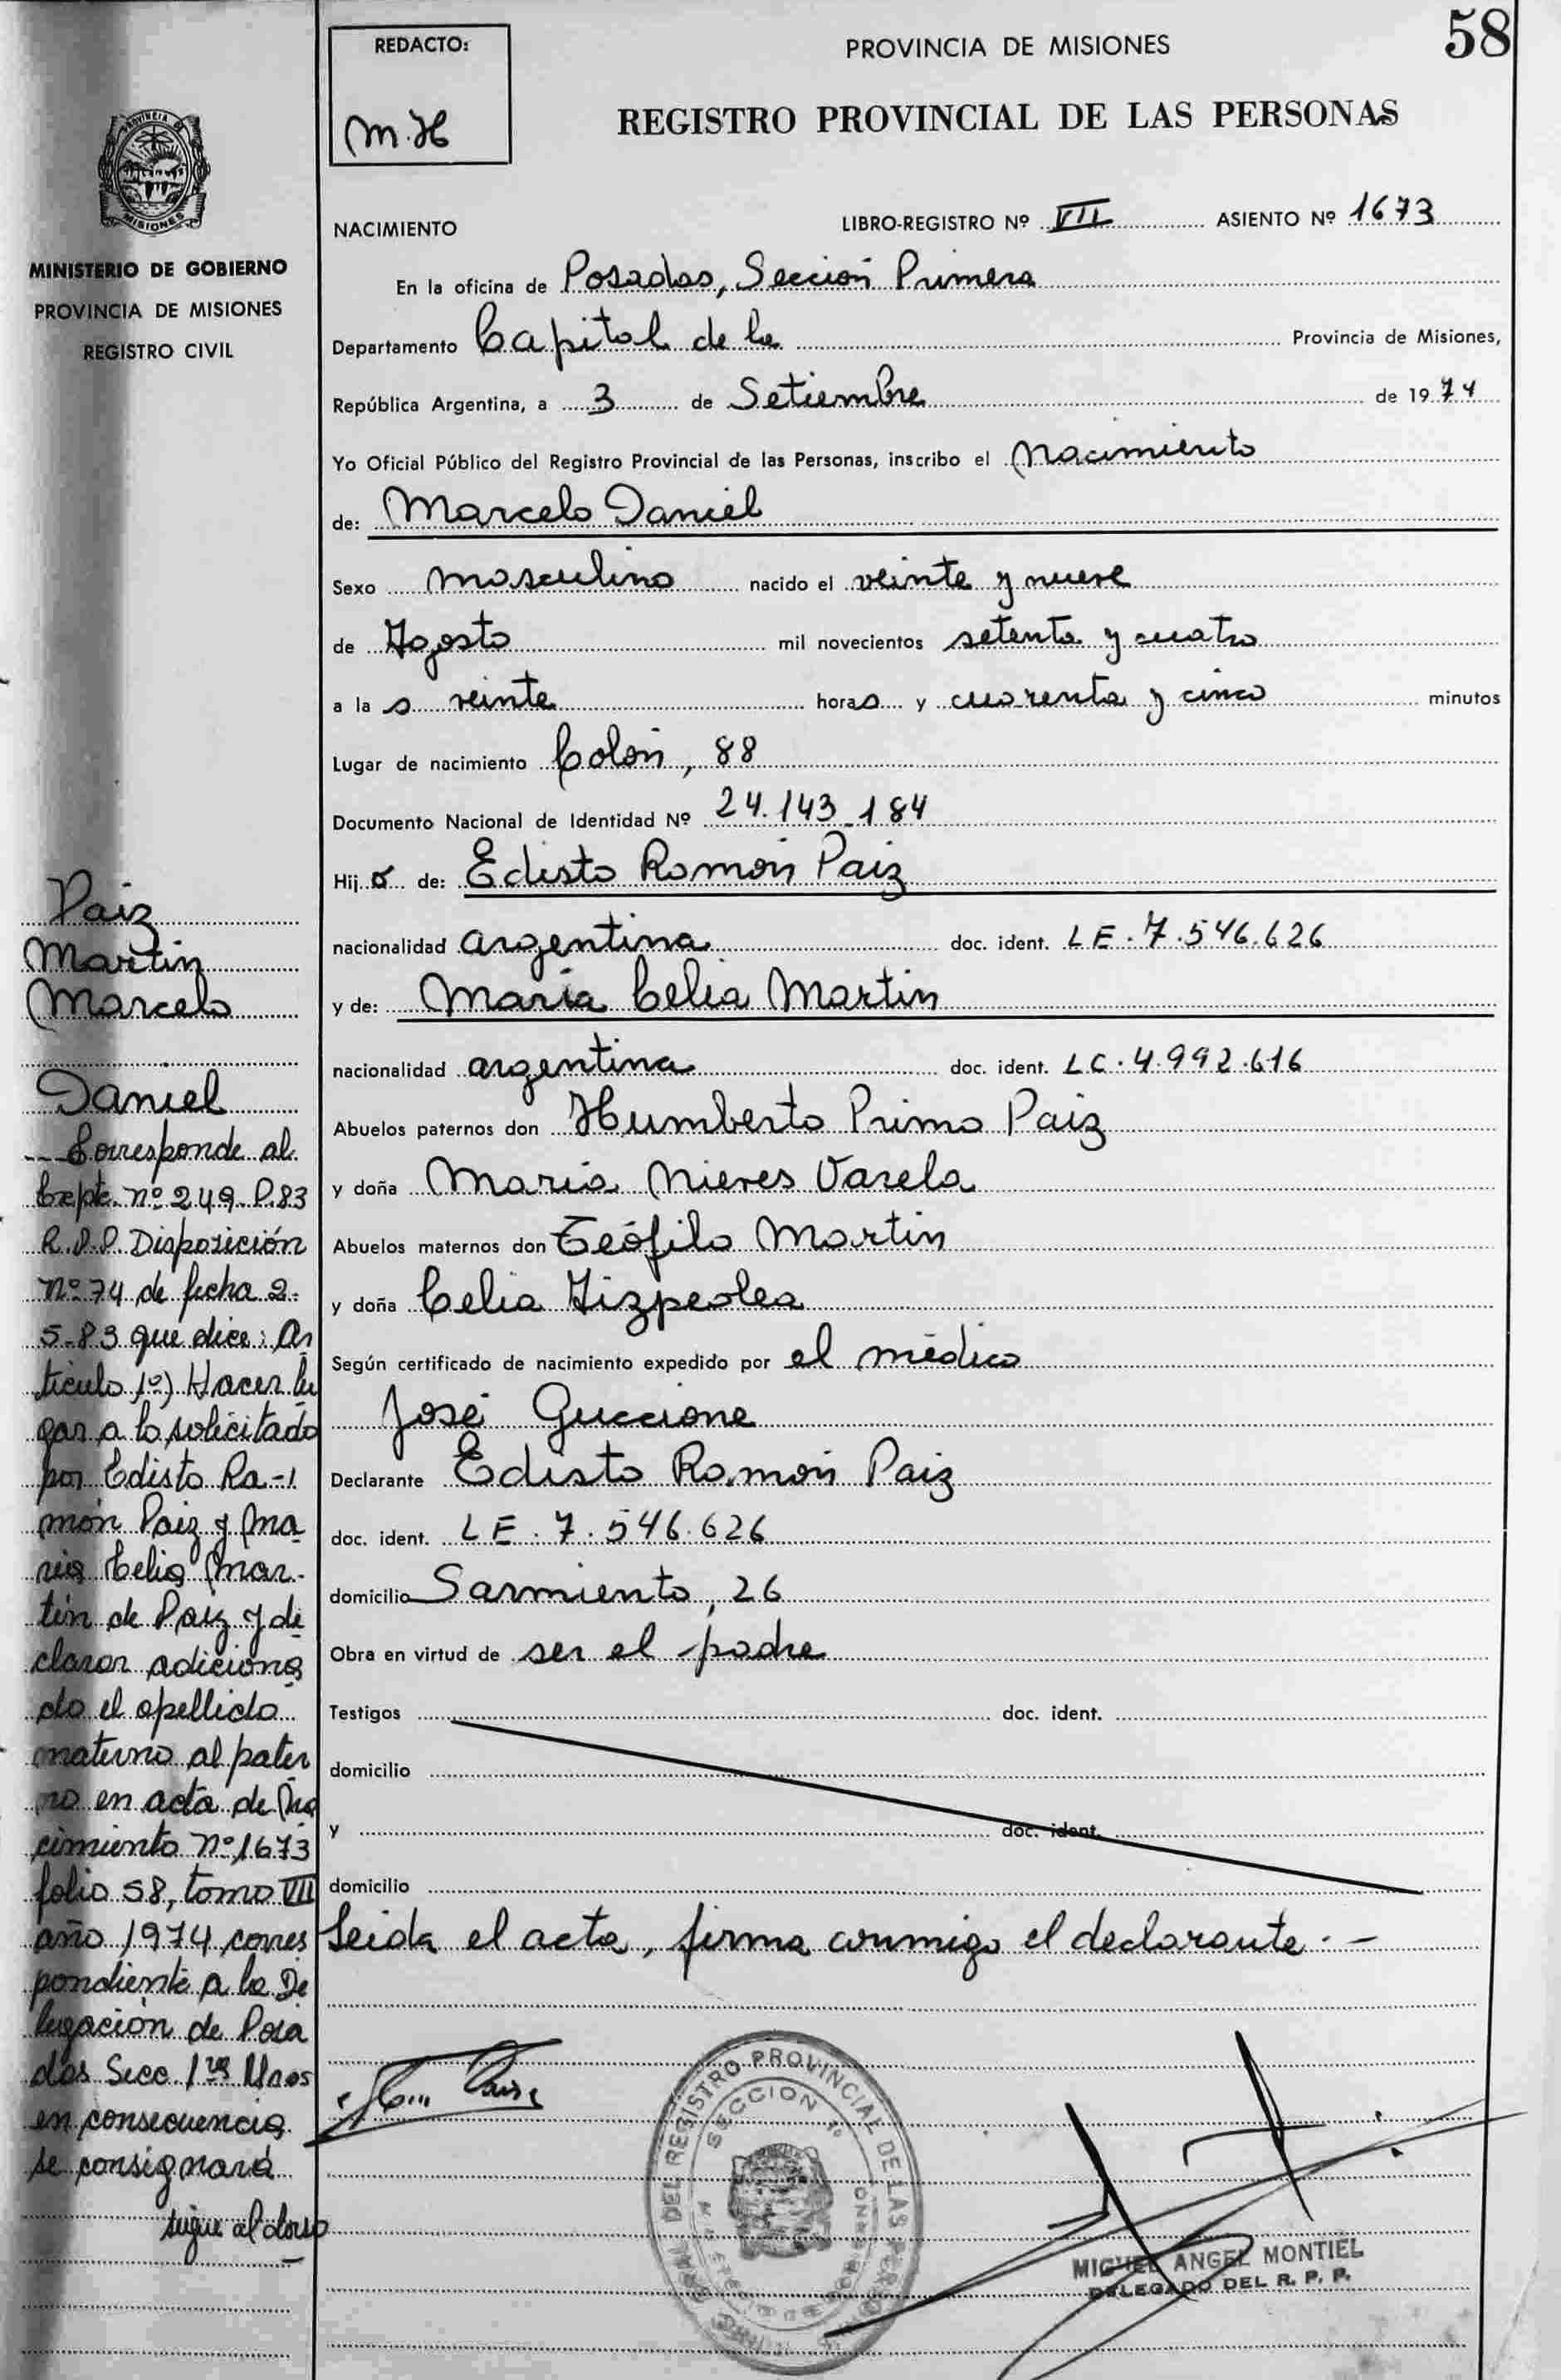 58
REDACTO:
M.H
PROVINCIA DE MISIONES
REGISTRO PROVINCIAL DE LAS PERSONAS
MISIONES
MINISTERIO DE GOBIERNO
PROVINCIA DE MISIONES
REGISTRO CIVIL
NACIMIENTO LIBRO-REGISTRO Nº VII ASIENTO Nº 1673
En la oficina de Posadas, Sección Primera
Departamento Capital de la Provincia de Misiones,
República Argentina, a 3 de Setiembre de 1974
Yo Oficial Público del Registro Provincial de las Personas, inscribo el Nacimiento
de: Marcelo Daniel
Sexo masculino nacido el veinte y nueve
de Agosto mil novecientos setenta y cuatro
a la s veinte horas y cuarenta y cinco minutos
Lugar de nacimiento Colón, 88
Documento Nacional de Identidad Nº 24.143.184
Hijo de: Edisto Ramón Paiz
nacionalidad argentina doc. ident. LE. 7.546.626
y de: María Celia Martin
nacionalidad argentina doc. ident. LC. 4.992.616
Abuelos paternos don Humberto Primo Paiz
y doña María Nieves Varela
Abuelos maternos don Teófilo Martin
y doña Celia Aizpeolea
Según certificado de nacimiento expedido por el médico
José Guccione
Declarante Edisto Ramón Paiz
doc. ident. LE. 7.546.626
domicilio Sarmiento, 26
Obra en virtud de ser el padre
Testigos doc. ident.
domicilio
y doc. ident.
domicilio
Leida el acta, firma conmigo el declarante. —
Paiz
Martin
Marcelo
Daniel
Corresponde al
Expte. nº 249. P.83
R.P.P. Disposición
Nº 74 de fecha 2-
5-83 que dice: Ar
tículo 1º) Hacer lu
gar a lo solicitado
por Edisto Ra-
món Paiz y Ma
ria Celia Mar-
tin de Paiz y de
clarar adiciona
do el apellido
materno al pater
no en acta de Na
cimiento Nº 1673
folio 58, tomo VII
año 1974 corres
pondiente a la De
legación de Posa
das Secc. 1ra
en consecuencia
se consignará
sigue al dorso
REGISTRO PROVINCIAL DE LAS PERSONAS
SECCION 1º
MIGUEL ANGEL MONTIEL
DELEGADO DEL R. P. P.